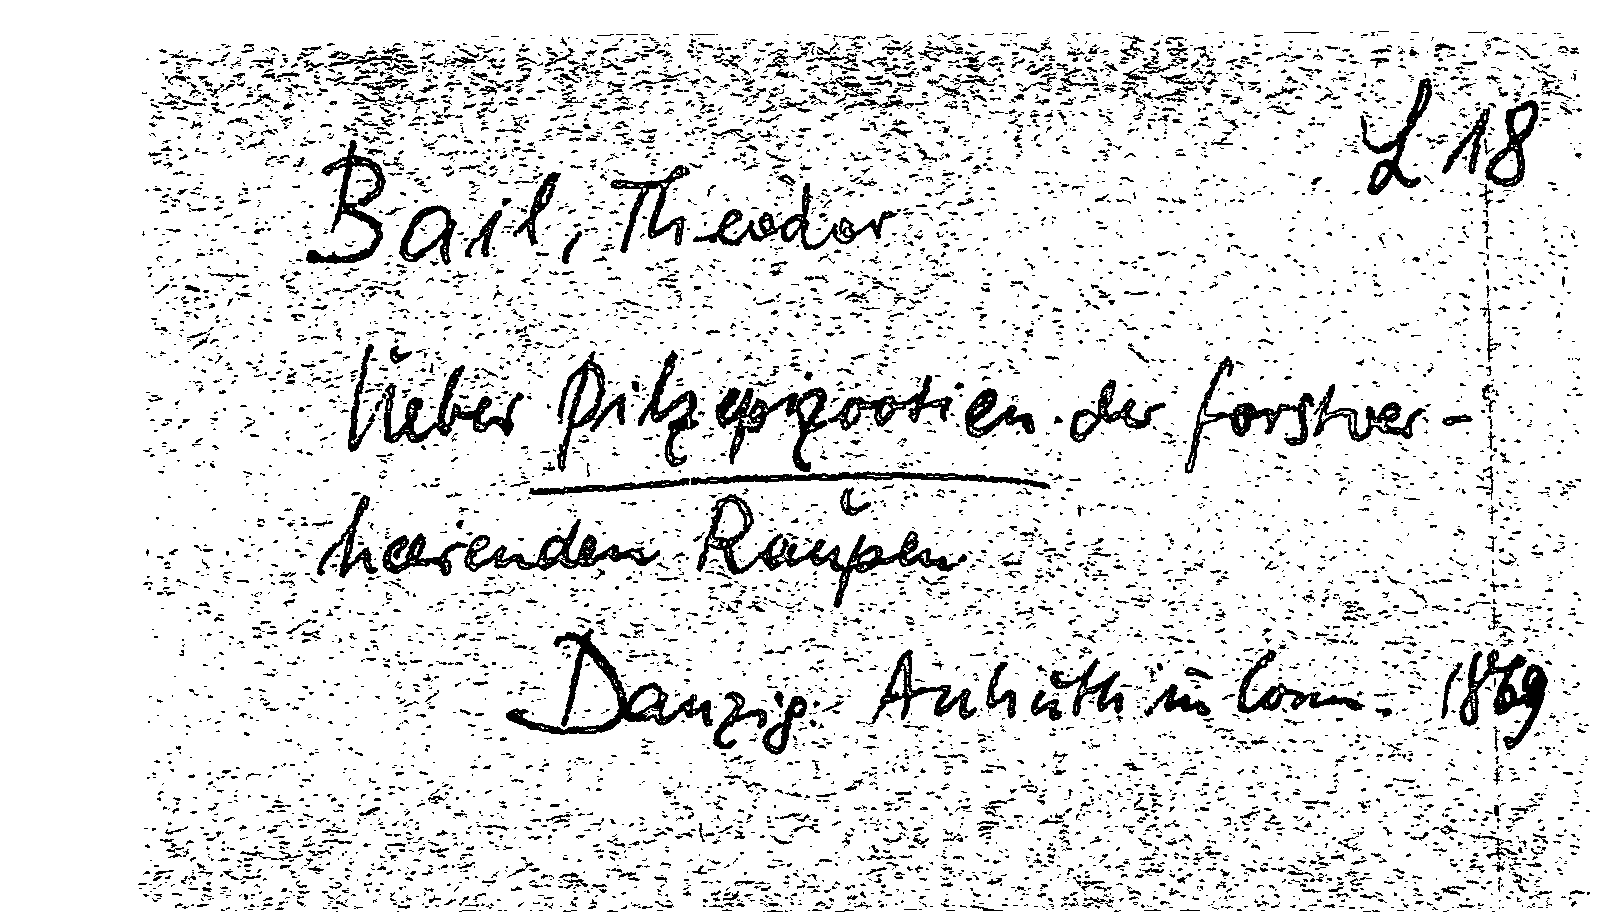 L 18
Bail, Theodor
Ueber Pilzepizootien der forstver-
heerenden Raupen
Danzig. Anhuth in Com. 1869